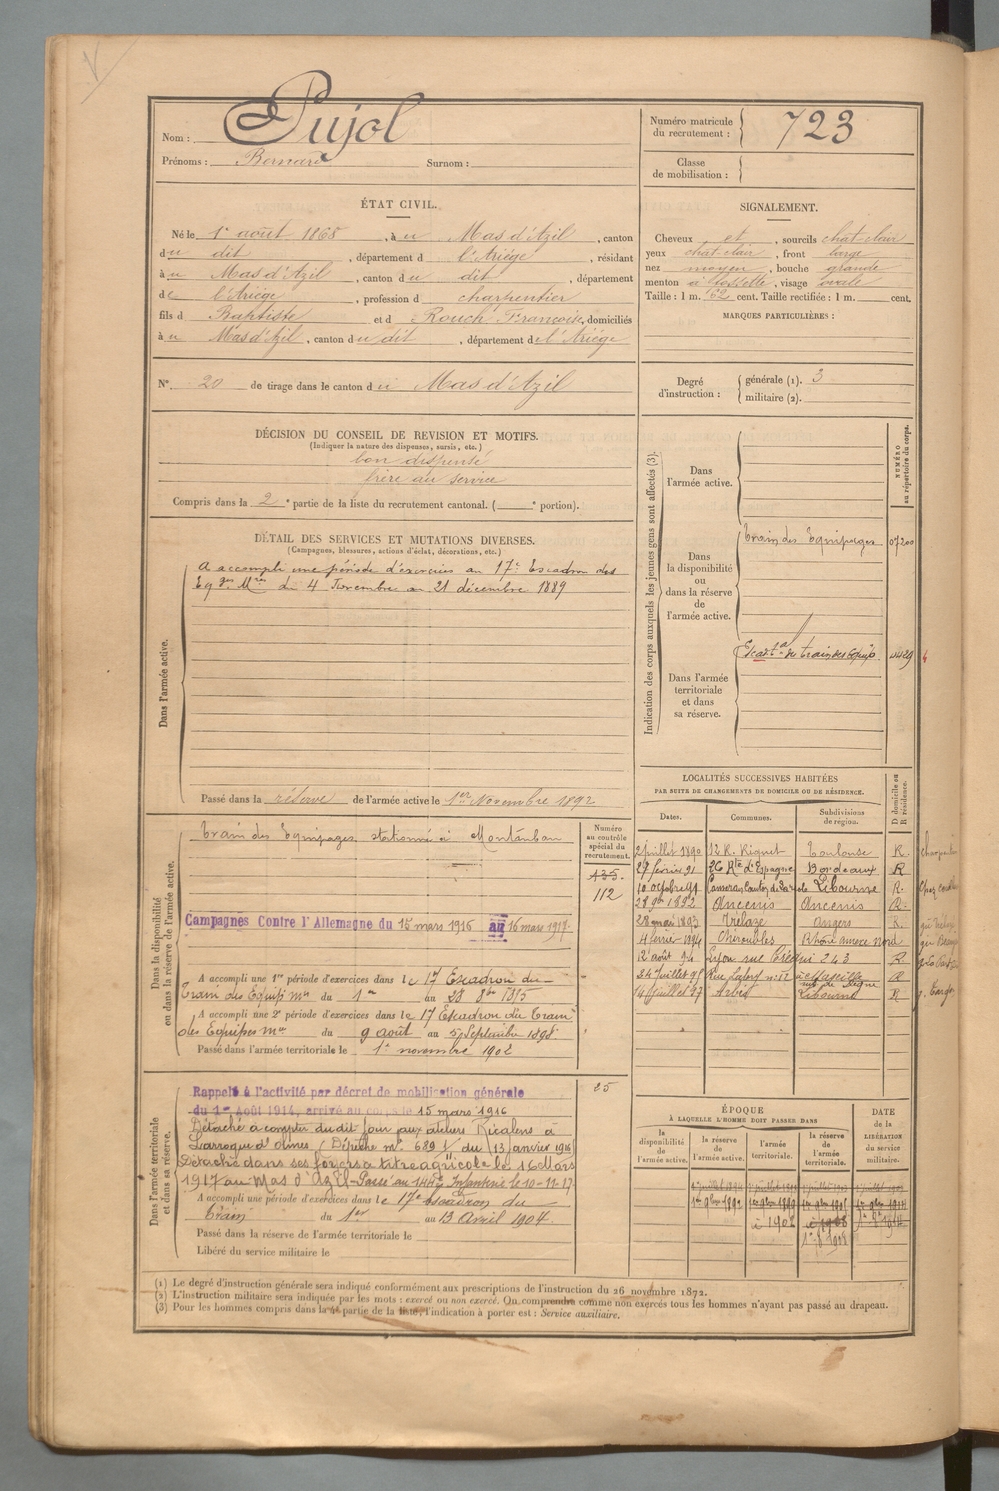 Nom : Pujol
Prénoms : Bernard Surnom :
Numéro matricule du recrutement : 723
Classe de mobilisation :
ÉTAT CIVIL.
Né le 1er août 1868, à u Mas d'Azil, canton
du dit, département d l'Ariège, résidant
à u Mas d'Azil, canton du dit, département
de l'Ariège, profession d charpentier
fils d Baptiste et d Rouch Françoise, domiciliés
à u Mas d'Azil, canton du dit, département de l'Ariège
SIGNALEMENT.
Cheveux et, sourcils chat-clair
yeux chat-clair, front large
nez moyen, bouche grande
menton à fossette, visage ovale
Taille : 1 m. 62 cent. Taille rectifiée : 1 m. cent.
MARQUES PARTICULIÈRES :
N° 20 de tirage dans le canton du Mas d'Azil
Degré d'instruction : générale (1). 3
militaire (2).
DÉCISION DU CONSEIL DE REVISION ET MOTIFS.
(Indiquer la nature des dispenses, sursis, etc.)
bon dispensé
frère au service
Compris dans la 2e partie de la liste du recrutement cantonal. ( e portion).
DÉTAIL DES SERVICES ET MUTATIONS DIVERSES.
(Campagnes, blessures, actions d'éclat, décorations, etc.)
Dans l'armée active.
A accompli une période d'exercices au 17e Escadron des
Eqges Mres du 4 Novembre au 21 décembre 1889
Passé dans la réserve de l'armée active le 1er Novembre 1892
Indication des corps auxquels les jeunes gens sont affectés (3).
NUMÉRO au répertoire du corps.
Dans l'armée active.
Dans la disponibilité ou dans la réserve de l'armée active.
Train des Equipages
Dans l'armée territoriale et dans sa réserve.
LOCALITÉS SUCCESSIVES HABITÉES
PAR SUITE DE CHANGEMENTS DE DOMICILE OU DE RÉSIDENCE.
Dates. Communes. Subdivisions de région. D domicile ou R résidence.
2 juillet 1890 12 R. Riquet Toulouse R.
27 février 91 26 Rte d'Espagne Bordeaux R
10 octobre 91 Libourne R.
1892 Ancenis Ancenis R.
28 mai 1893 Trélazé Angers R.
4 février 1894 Chéroubles Rhône annexe Nord
12 août 94 Lyon rue Créqui 243 R
24 Juillet 95 Marseille R
14 Juillet 97 Libourne R
Dans la disponibilité ou dans la réserve de l'armée active.
Train des Equipages stationné à Montauban
Numéro au contrôle spécial du recrutement.
435.
112
Campagnes Contre l'Allemagne du 15 mars 1916 au 16 mars 1917.
A accompli une 1re période d'exercices dans le 17 Escadron du
Train des Equip. mre du 1er au 28 8bre 1895
A accompli une 2e période d'exercices dans le 17 Escadron du Train
des Equipes mre du 9 août au 5 Septembre 1898
Passé dans l'armée territoriale le 1er novembre 1902
Dans l'armée territoriale et dans sa réserve.
25
Rappelé à l'activité par décret de mobilisation générale
du 1er Août 1914, arrivé au corps le 15 mars 1916
Détaché à compter du dit jour aux ateliers Ricalens à
Larroque d'Olmes (Dépêche mle 689 du 13 janvier 1916
Détaché dans ses foyers à titre agricole le 16 Mars
1917 au Mas d'Azil - Passé au 144e Infanterie le 10-11-17.
A accompli une période d'exercices dans le 17e escadron du
train du 1er au 13 Avril 1904.
Passé dans la réserve de l'armée territoriale le
Libéré du service militaire le
ÉPOQUE
À LAQUELLE L'HOMME DOIT PASSER DANS
la disponibilité de l'armée active. la réserve de l'armée active. l'armée territoriale. la réserve de l'armée territoriale.
DATE de la LIBÉRATION du service militaire.
(1) Le degré d'instruction générale sera indiqué conformément aux prescriptions de l'instruction du 26 novembre 1872.
(2) L'instruction militaire sera indiquée par les mots : exercé ou non exercé. On comprendra comme non exercés tous les hommes n'ayant pas passé au drapeau.
(3) Pour les hommes compris dans la 4e partie de la liste, l'indication à porter est : Service auxiliaire.